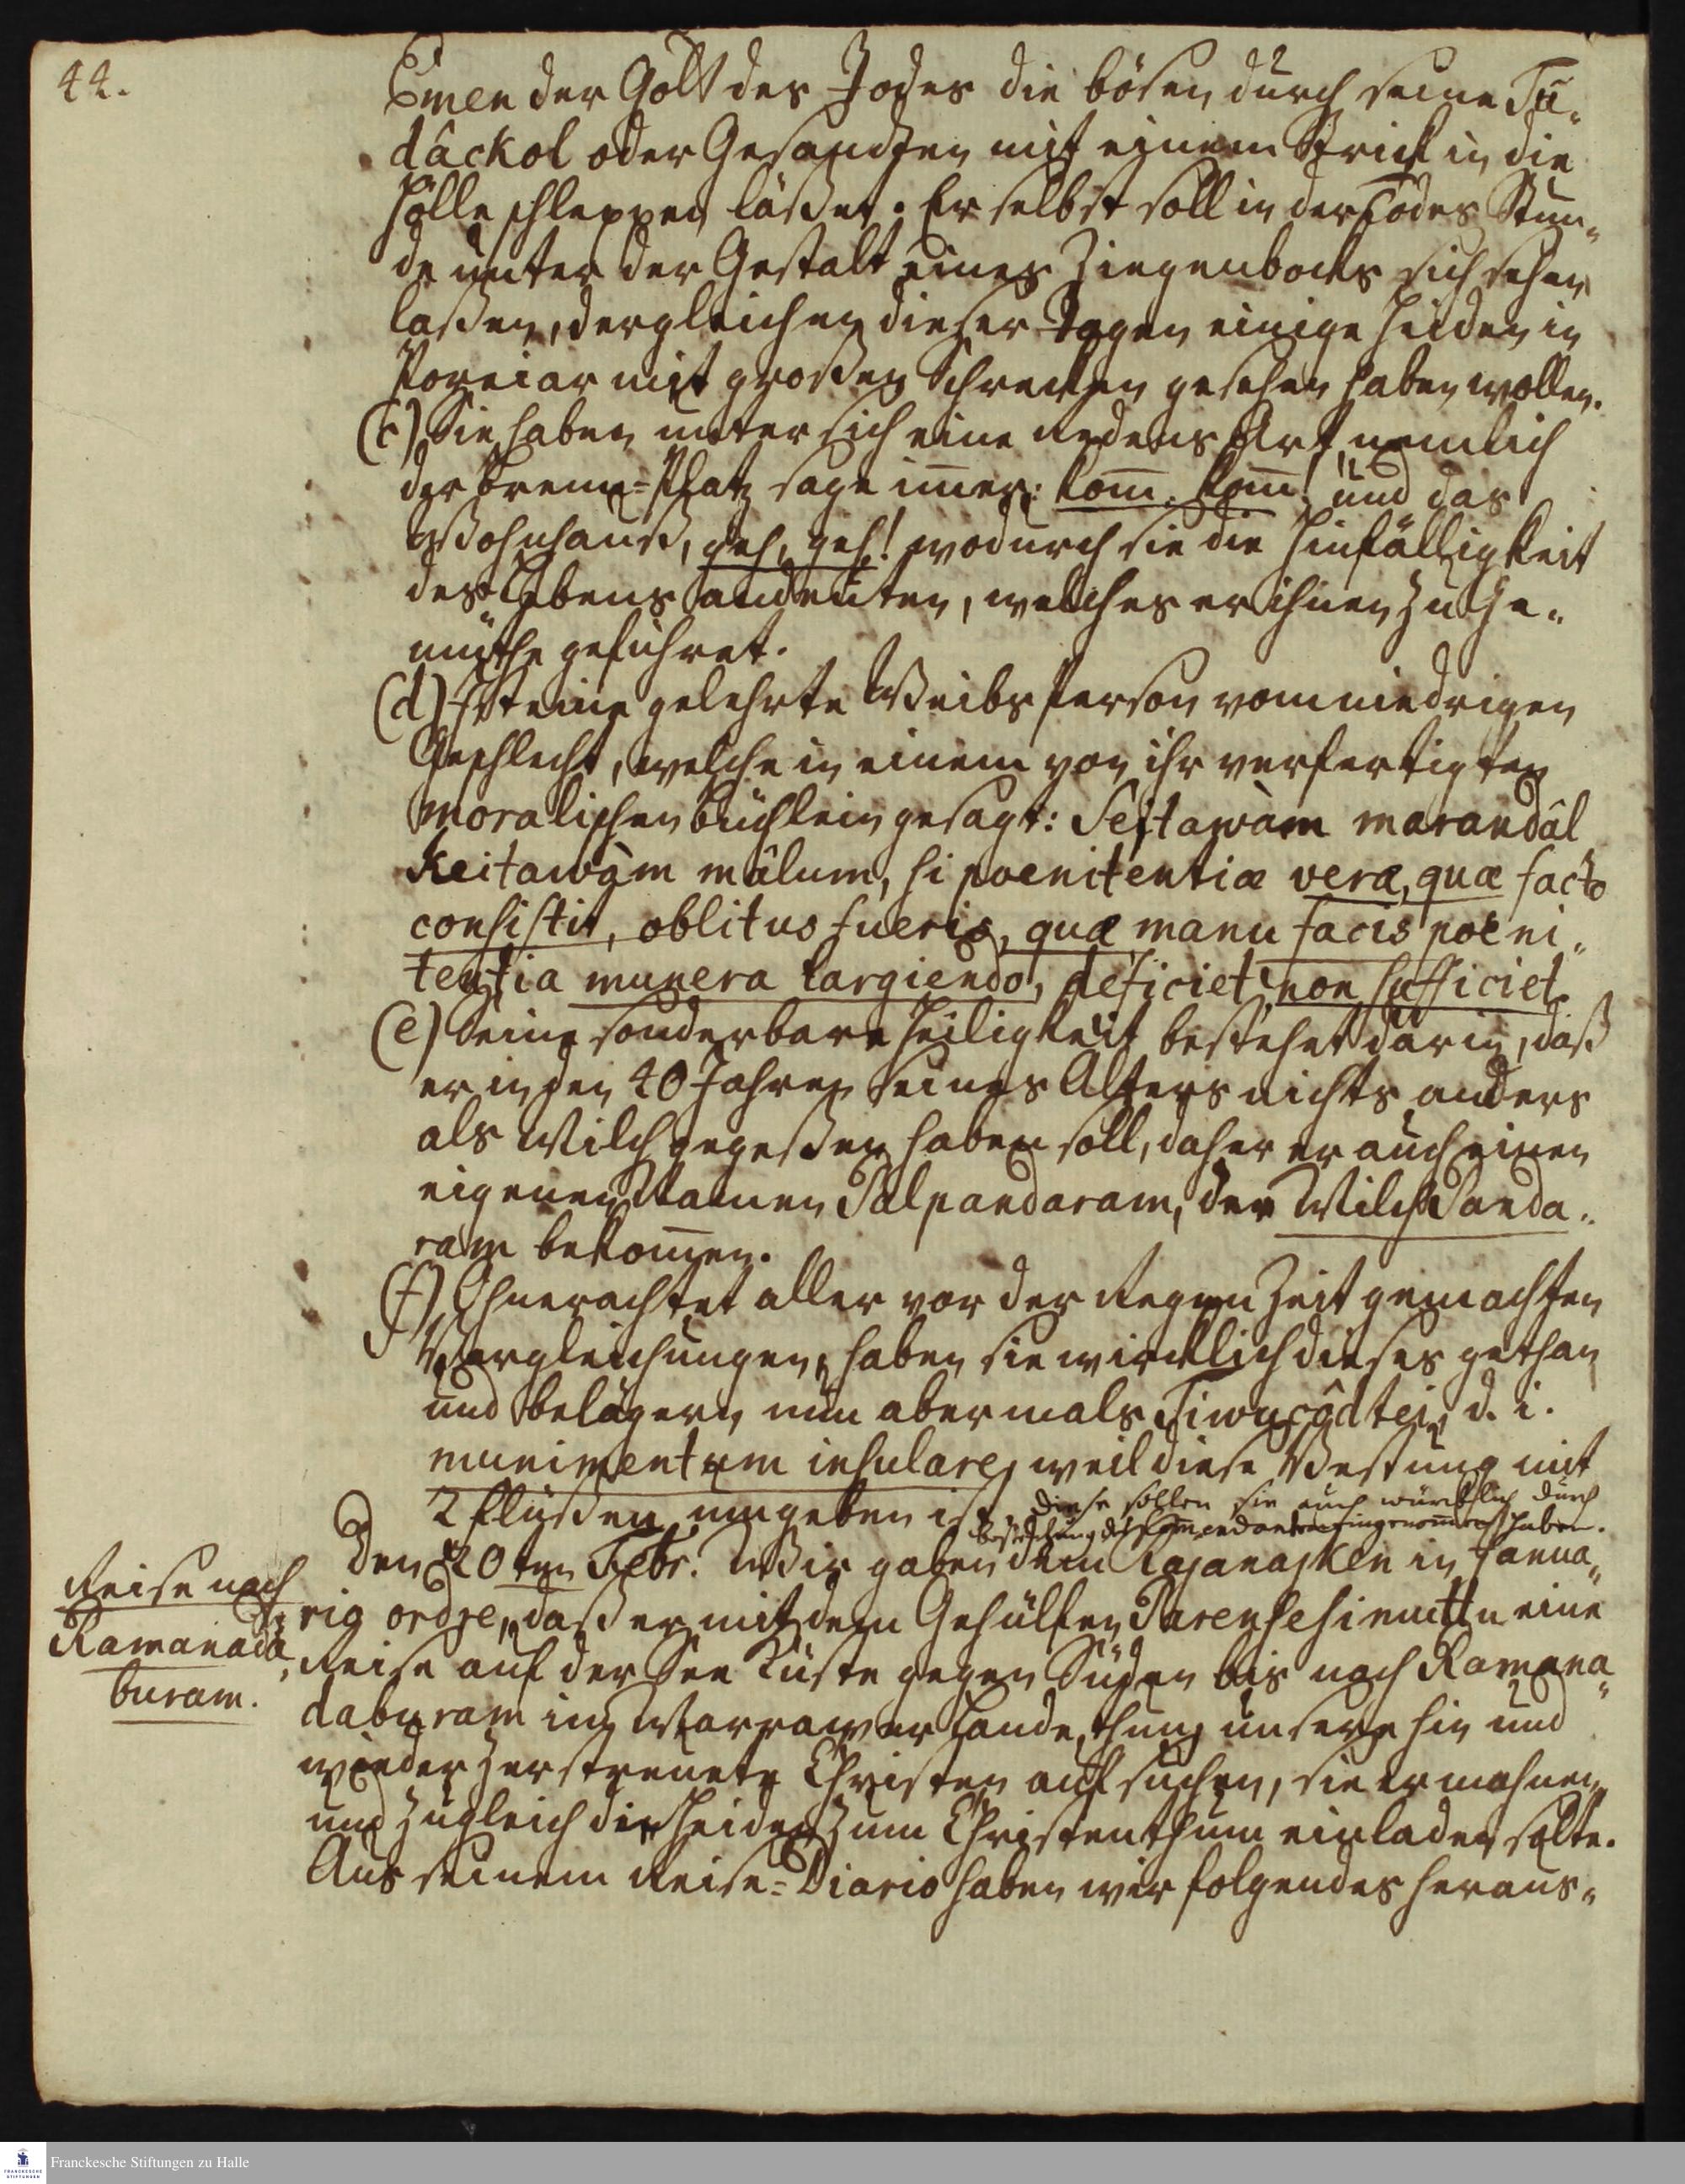 44.
Emen der Gott des Todes die bösen durch seine Tū-
dâckol oder Gesandten mit einem Strick in die
Hölle schleppen läßet. Er selbst soll in der Todes Stun-
de unter der Gestalt eines Ziegenbocks sich sehen
laßen, dergleichen dieser Tagen einige Heiden in
Poreiar mit großen Schrecken gesehen haben wollen.
(c) Sie haben unter sich eine redens Art, nemlich
der Brenn-Platz sage im̄er: kom̄, kom̄! und das
Wohnhauß, geh, geh! wodurch sie die Hinfälligkeit
des Lebens andeuten, welches er ihnen zu Ge-
müthe geführet.
(d) Ist eine gelehrte Weibs Person vom niedrigen
Geschlecht, welche in einem von ihr verfertigten
moralischen Büchlein gesagt: Seitawàm marandâl
Keitawàm mâlum, si poenitentiæ veræ, quæ facto
consistit, oblitus fueris, quæ manu facis poeni-
tentia munera largiendo, deficiet non sufficiet.
(e) Seine sonderbare Heiligkeit bestehet darin, daß
er in den 40 Jahren seines Alters nichts anders
als Milch gegeßen haben soll, daher er auch einen
eigenen Namen Palpandaram, der Milch Panda-
ram bekom̄en.
(f) Ohnerachtet aller vor der Regen Zeit gemachten
Vergleichungen, haben sie wircklich dieses gethan
und belägern nun abermals Tiwucôdtei, d. i.
munimentum insulare, weil diese Vestung mit
2 Flüßen umgeben ist. Diese sollen sie auch würcklich durch
Bestechung des Commendanten eingenom̄en haben.
Den 20ten Febr. Wir gaben dem Rajanaiken in Janua-
rio ordre, daß er mit dem Gehülfen Parensesimuttu eine
Reise auf der See Küste gegen Süden bis nach Ramana-
daburam im Marrawer Lande thun, unsere hin und
wieder zerstreuete Christen aufsuchen, sie ermahnen
und zugleich die Heiden zum Christenthum einladen solte.
Aus seinem Reise-Diario haben wir folgendes heraus-
Reise nach
Ramanada-
buram.
Franckesche Stiftungen zu Halle